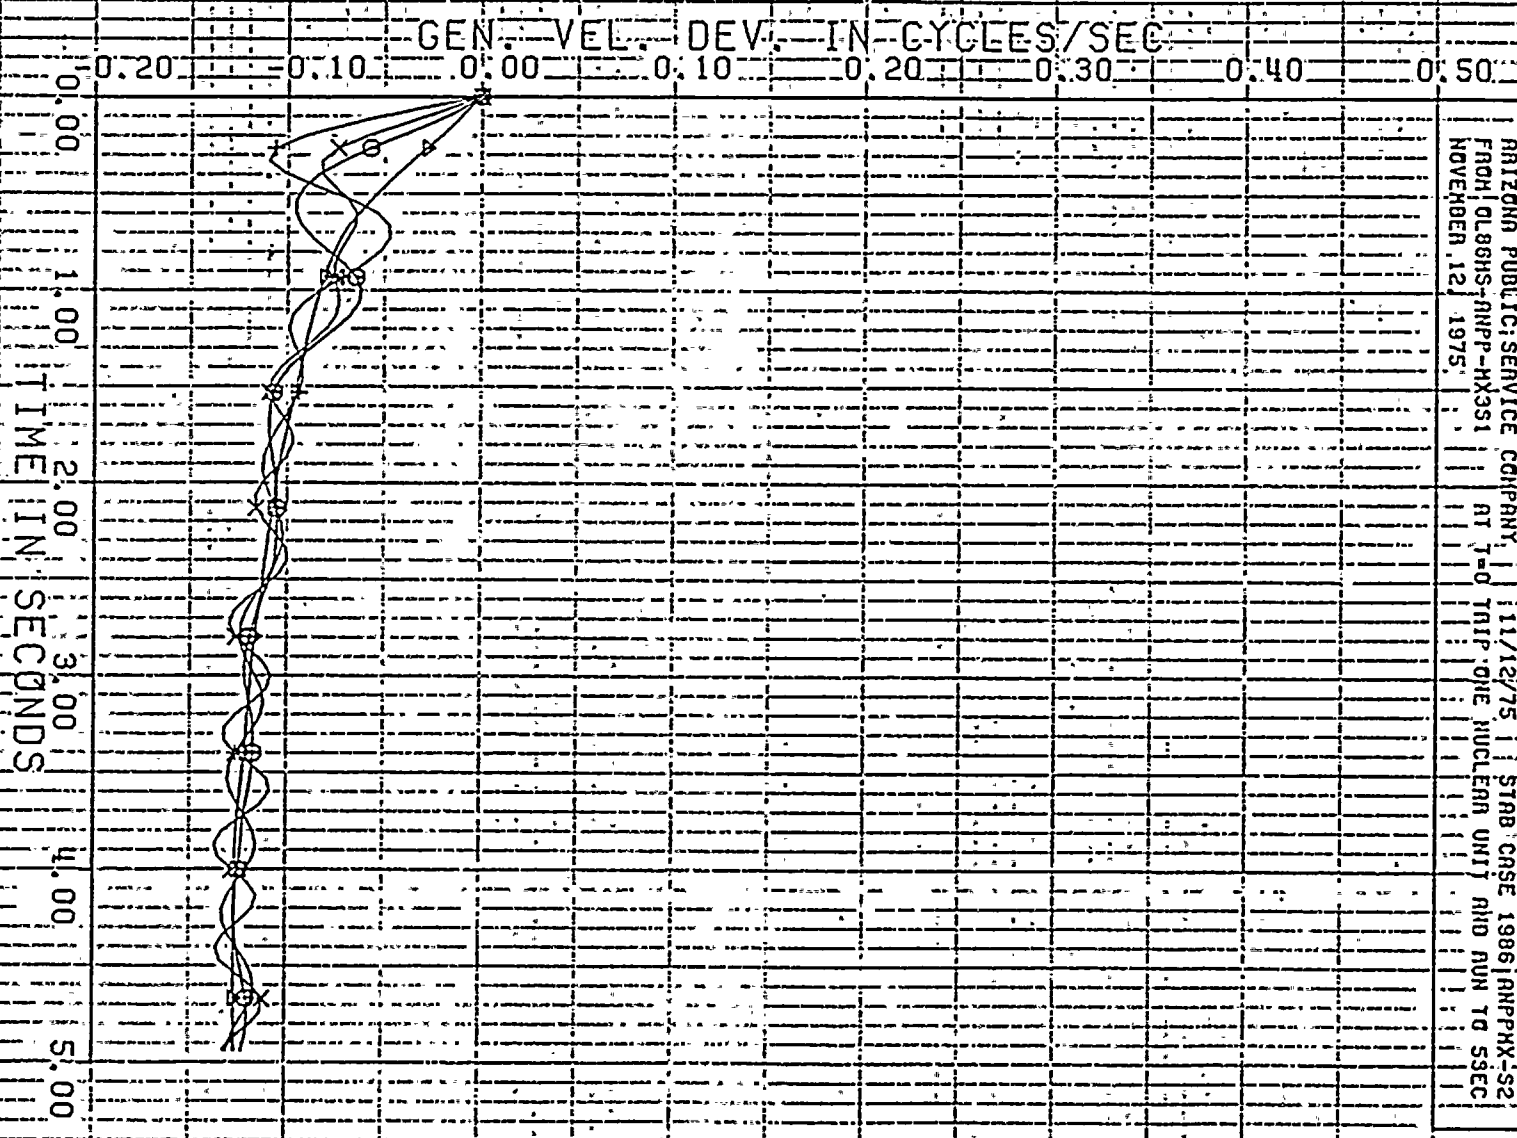 GEN. VEL. DEV. IN CYCLES/SEC
-0.20 -0.10 0.00 0.10 0.20 0.30 0.40 0.50
0.00
1.00
2.00
3.00
4.00
5.00
TIME IN SECONDS
ARIZONA PUBLIC SERVICE COMPANY 11/12/75 STAB CASE 1986 ANPPMX-S2
FROM OL86HS-ANPP-MX3S1 AT T=0 TRIP ONE NUCLEAR UNIT AND RUN TO 5SEC
NOVEMBER 12, 1975